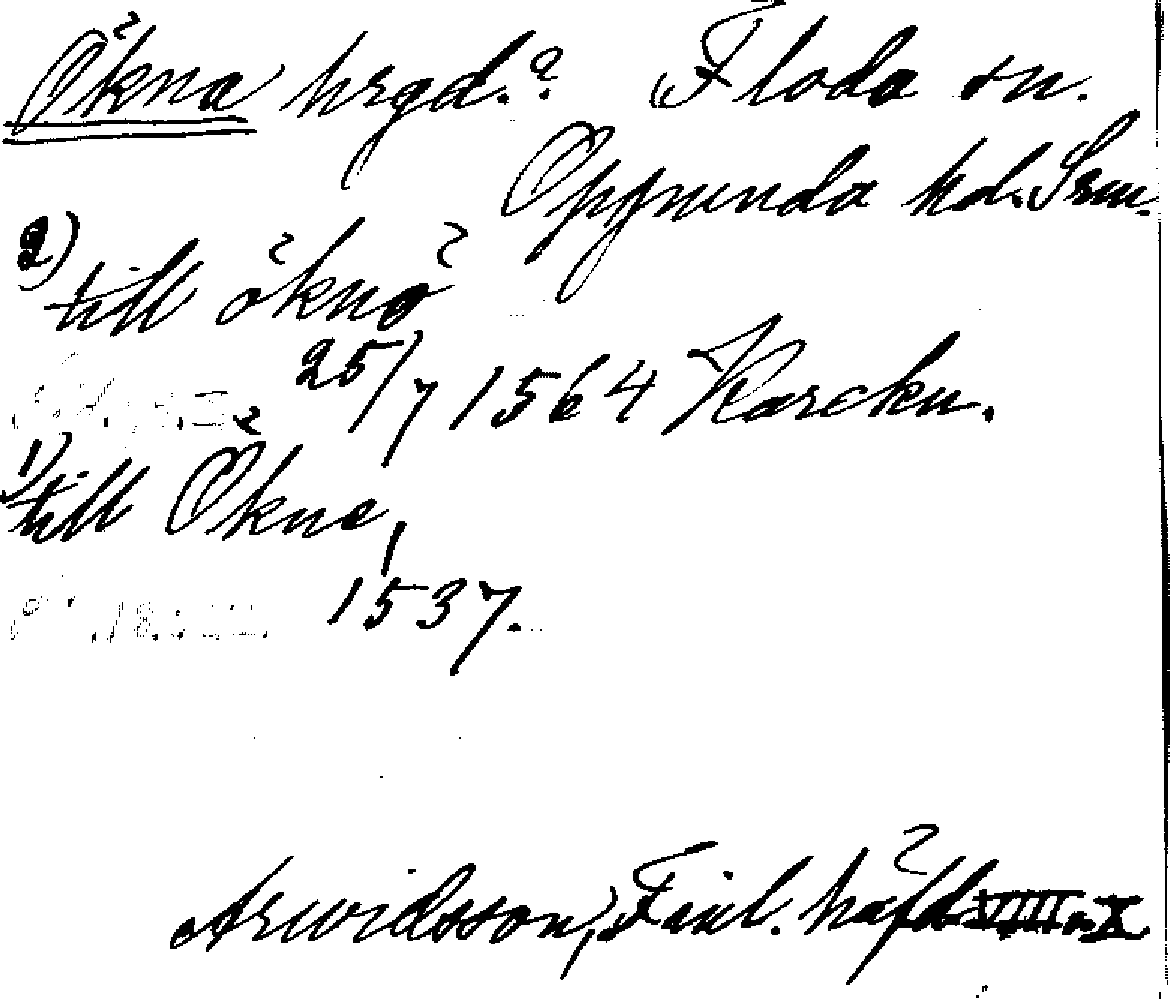 Ökna hrgd.? Floda sn.
Oppunda hd. Srm.
2) till öknö
25/7 1564 Karcku.
1) till Ökne,
1537.
Arwidsson, Finl. häfd VIII o. X.